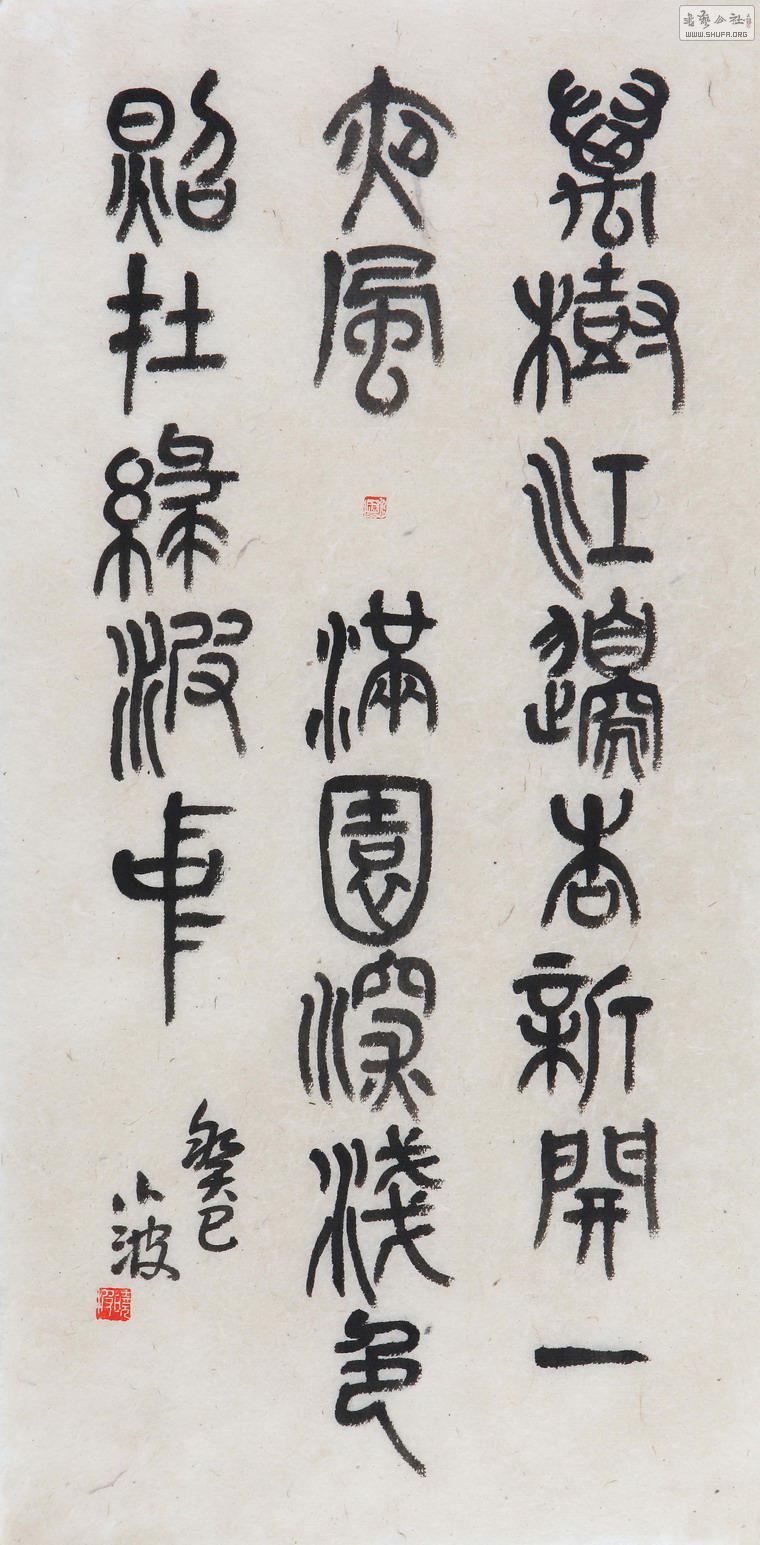 萬樹江邊杏新開一
夜風滿園深淺色
照在綠波中
癸巳
小波
書藝公社
WWW.SHUFA.ORG